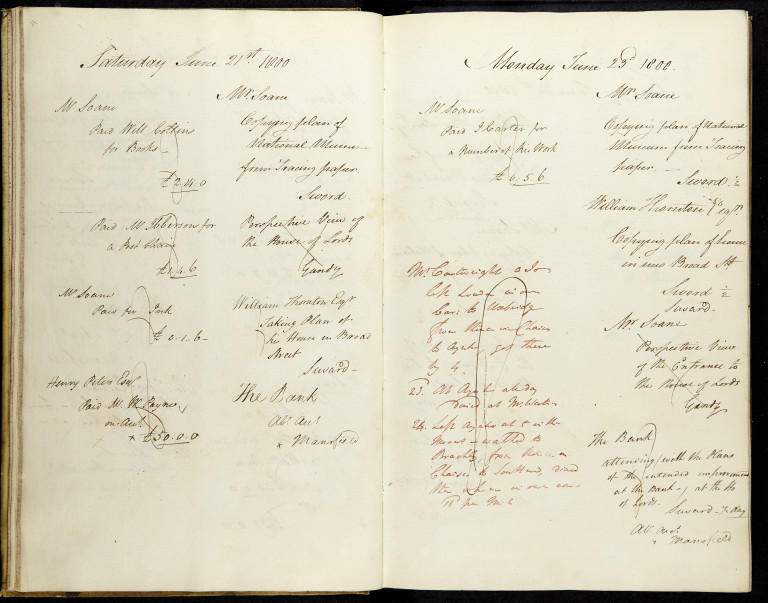 Saturday June 21st 1800
Mr Soane
Paid Will Collins
for Books
£2.14.0
Paid Mr Ibberson for
a Post Chaise
£1.4.6
Mr Soane
Paid for Ink
£0.1.6
Henry Peters Esqr
Paid Mr Wm Payne
on Acct
£50.0.0
Mr Soane
Copying plan of
National Museum
from Tracing paper.
Sword.
Perspective View of
the House of Lords
Gandy
William Thornton Esqr
Taking Plan of
his House in Broad
Street
Seward
The Bank
Abt Acct
Mansfield
Monday June 23d 1800.
Mr Soane
Paid J Carter for
a Number of his Work
£0.5.6
Mr Cartwright & Jos
left London in one
to Uxbridge
from thence in Chaise
to got there
by 4.
23d. At all day
dined at Mr
24 left at 5 in the
walked to
from thence in
Chaise to dined
Mr Soane
Copying plan of National
Museum from Tracing
paper.
Sword ½
William Thornton Esqr.
Copying plan of house
in new Broad St
Sword ½
Seward
Mr Soane
Perspective View
of the Entrance to
the House of Lords
Gandy
The Bank
attending with the Plans
of the intended improvements
at the Bank at the Ho
of Lords.
Seward ½ day
Abt Acct
Mansfield